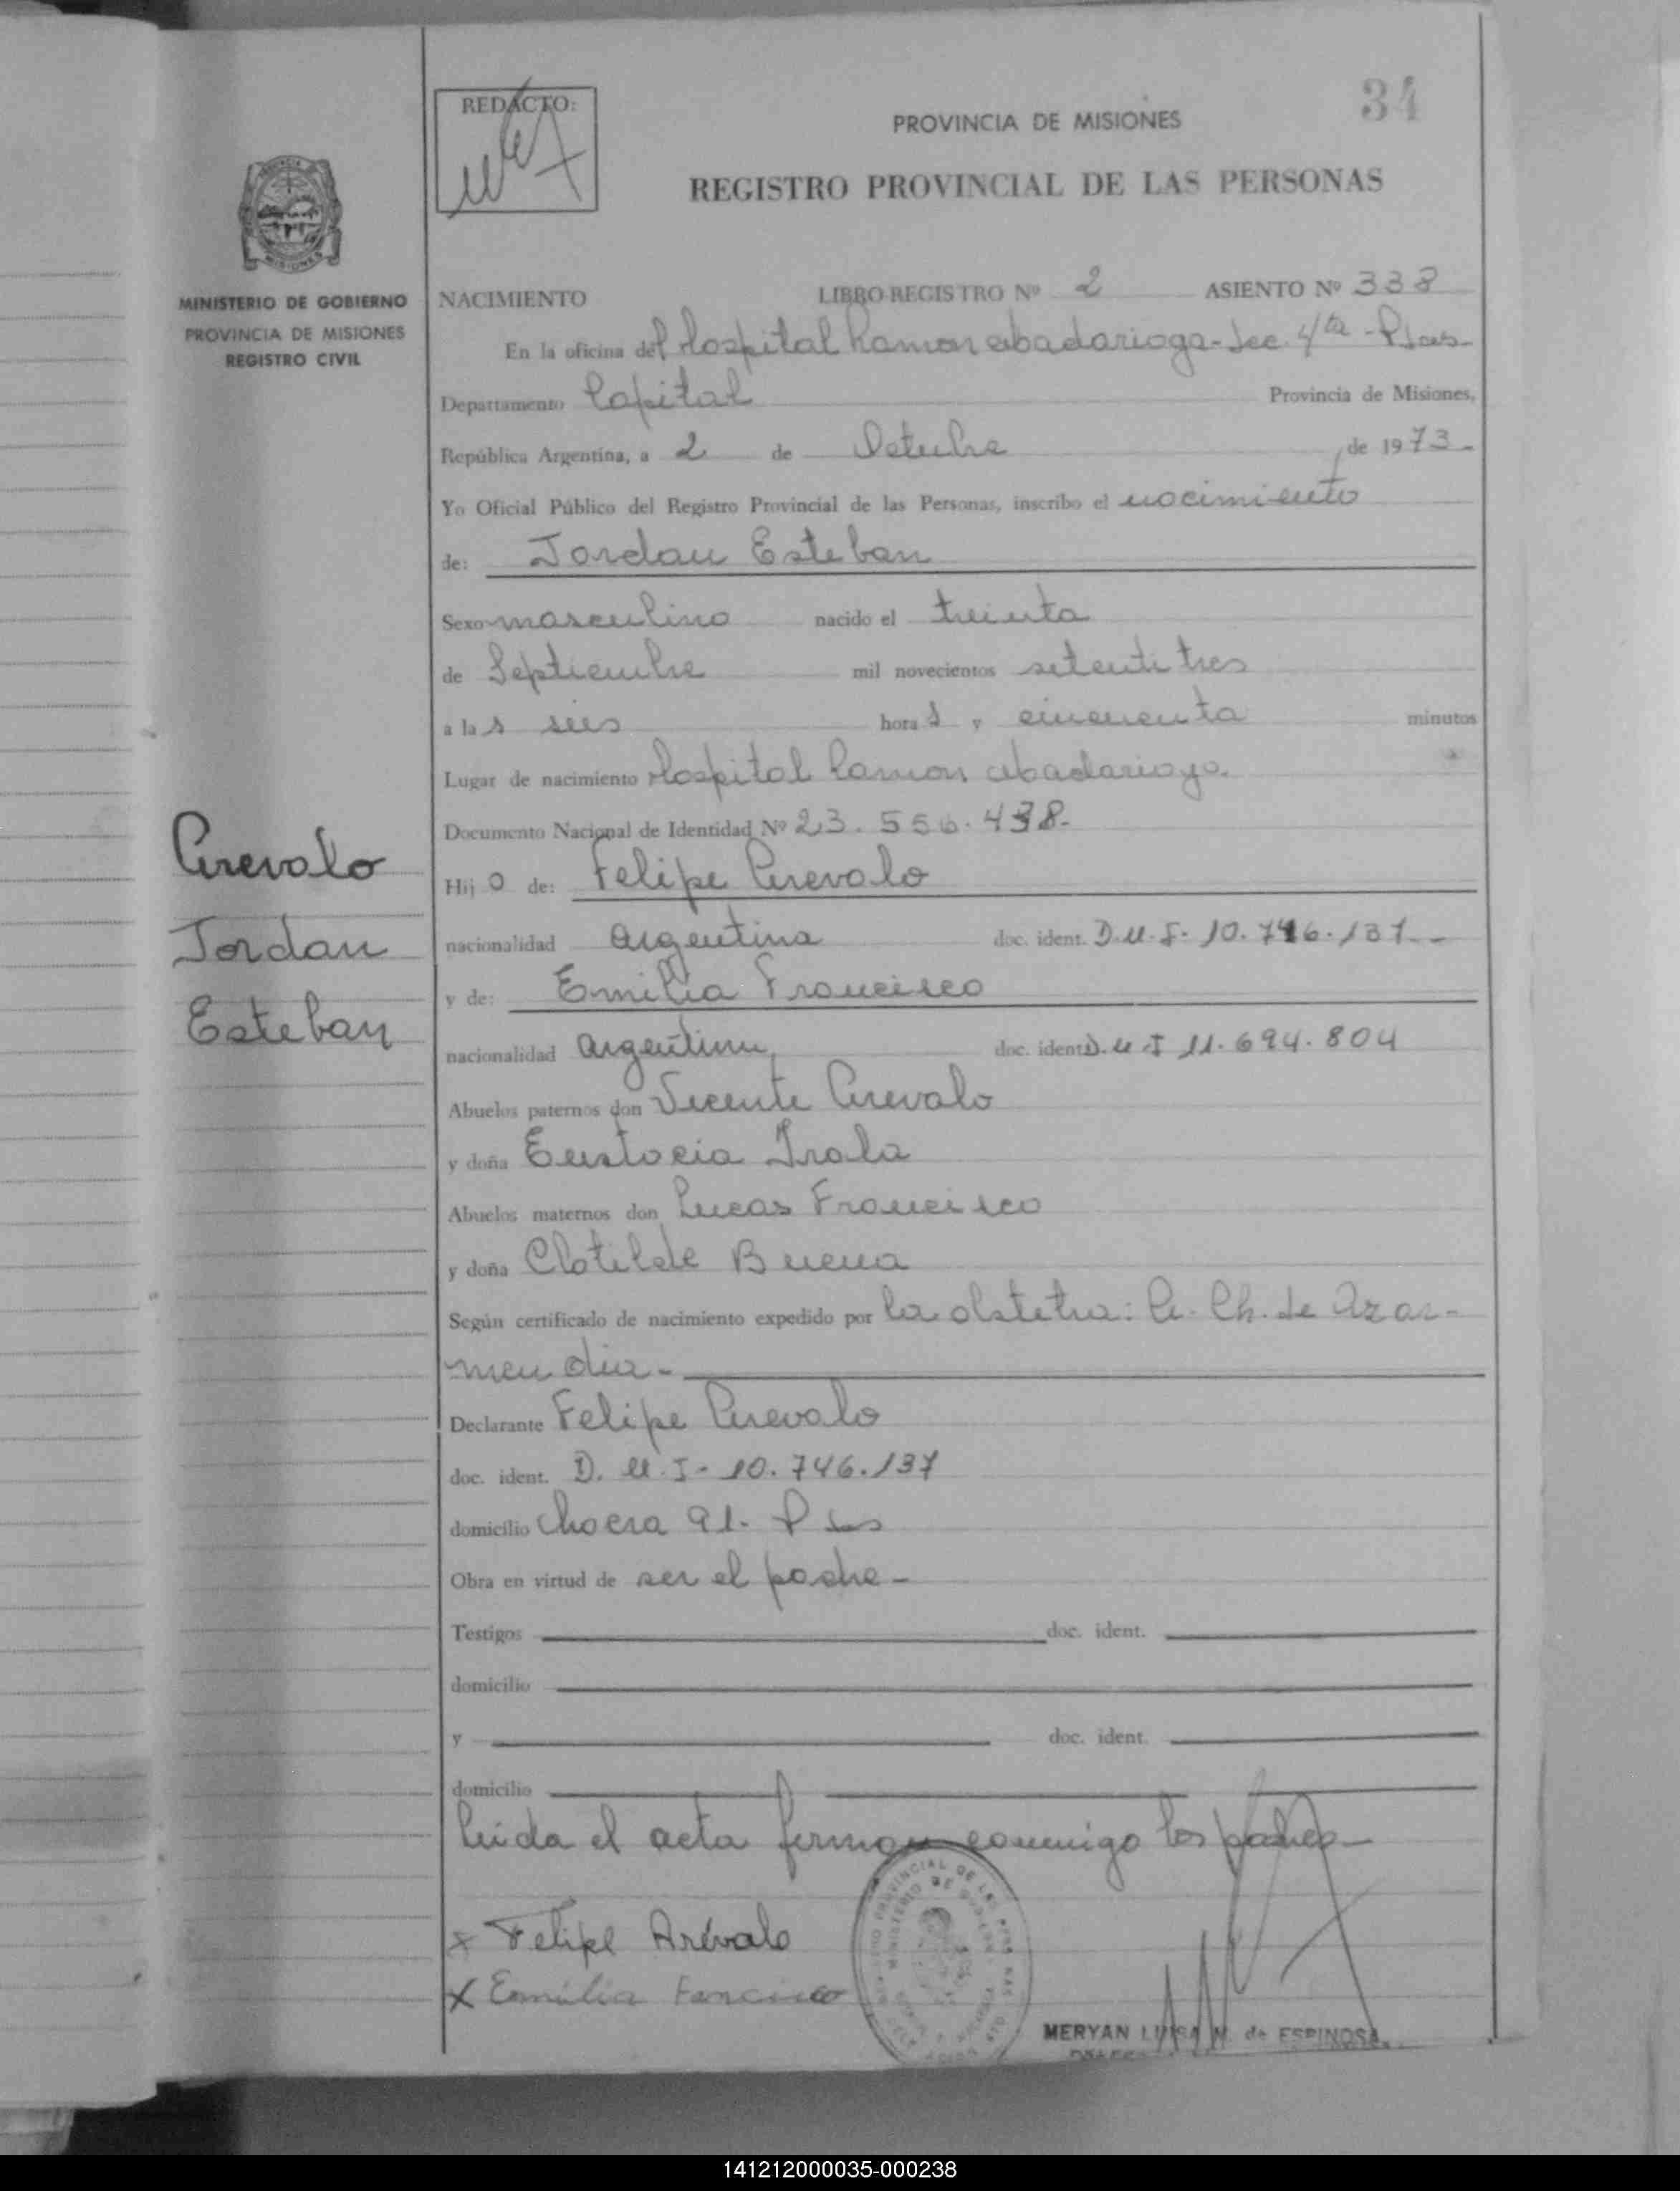 34
REDACTO:
PROVINCIA DE MISIONES
REGISTRO PROVINCIAL DE LAS PERSONAS
MISIONES
MINISTERIO DE GOBIERNO
PROVINCIA DE MISIONES
REGISTRO CIVIL
NACIMIENTO LIBRO REGISTRO Nº 2 ASIENTO Nº 338
En la oficina del Hospital Ramon abadarioga - Sec. 4ta - Pdas
Departamento Capital Provincia de Misiones,
República Argentina, a 2 de Octubre de 1973-
Yo Oficial Público del Registro Provincial de las Personas, inscribo el nacimiento
de: Jordan Esteban
Sexo masculino nacido el treinta
de Septiembre mil novecientos setentitres
a las seis horas y cincuenta minutos
Lugar de nacimiento Hospital Ramon abadarioga.
Documento Nacional de Identidad Nº 23.556.438-
Arevalo
Jordan
Esteban
Hijo de: Felipe Arevalo
nacionalidad argentina doc. ident. D.U.I- 10.746.137-
y de: Emilia Francisco
nacionalidad argentina, doc. ident. D.U.I 11.694.804
Abuelos paternos don Vicente Arevalo
y doña Eustocia Irala
Abuelos maternos don Lucas Francisco
y doña Clotilde Buena
Según certificado de nacimiento expedido por la obstetra: A. Ch. de Azar-
mendia-
Declarante Felipe Arevalo
doc. ident. D.U.I- 10.746.137
domicilio Chacra 91- Pdas
Obra en virtud de ser el padre-
Testigos doc. ident.
domicilio
y doc. ident.
domicilio
Leida el acta firman conmigo los padres-
x Felipe Arévalo
x Emilia Fancisco
MERYAN LUISA M. de ESPINOSA
141212000035-000238